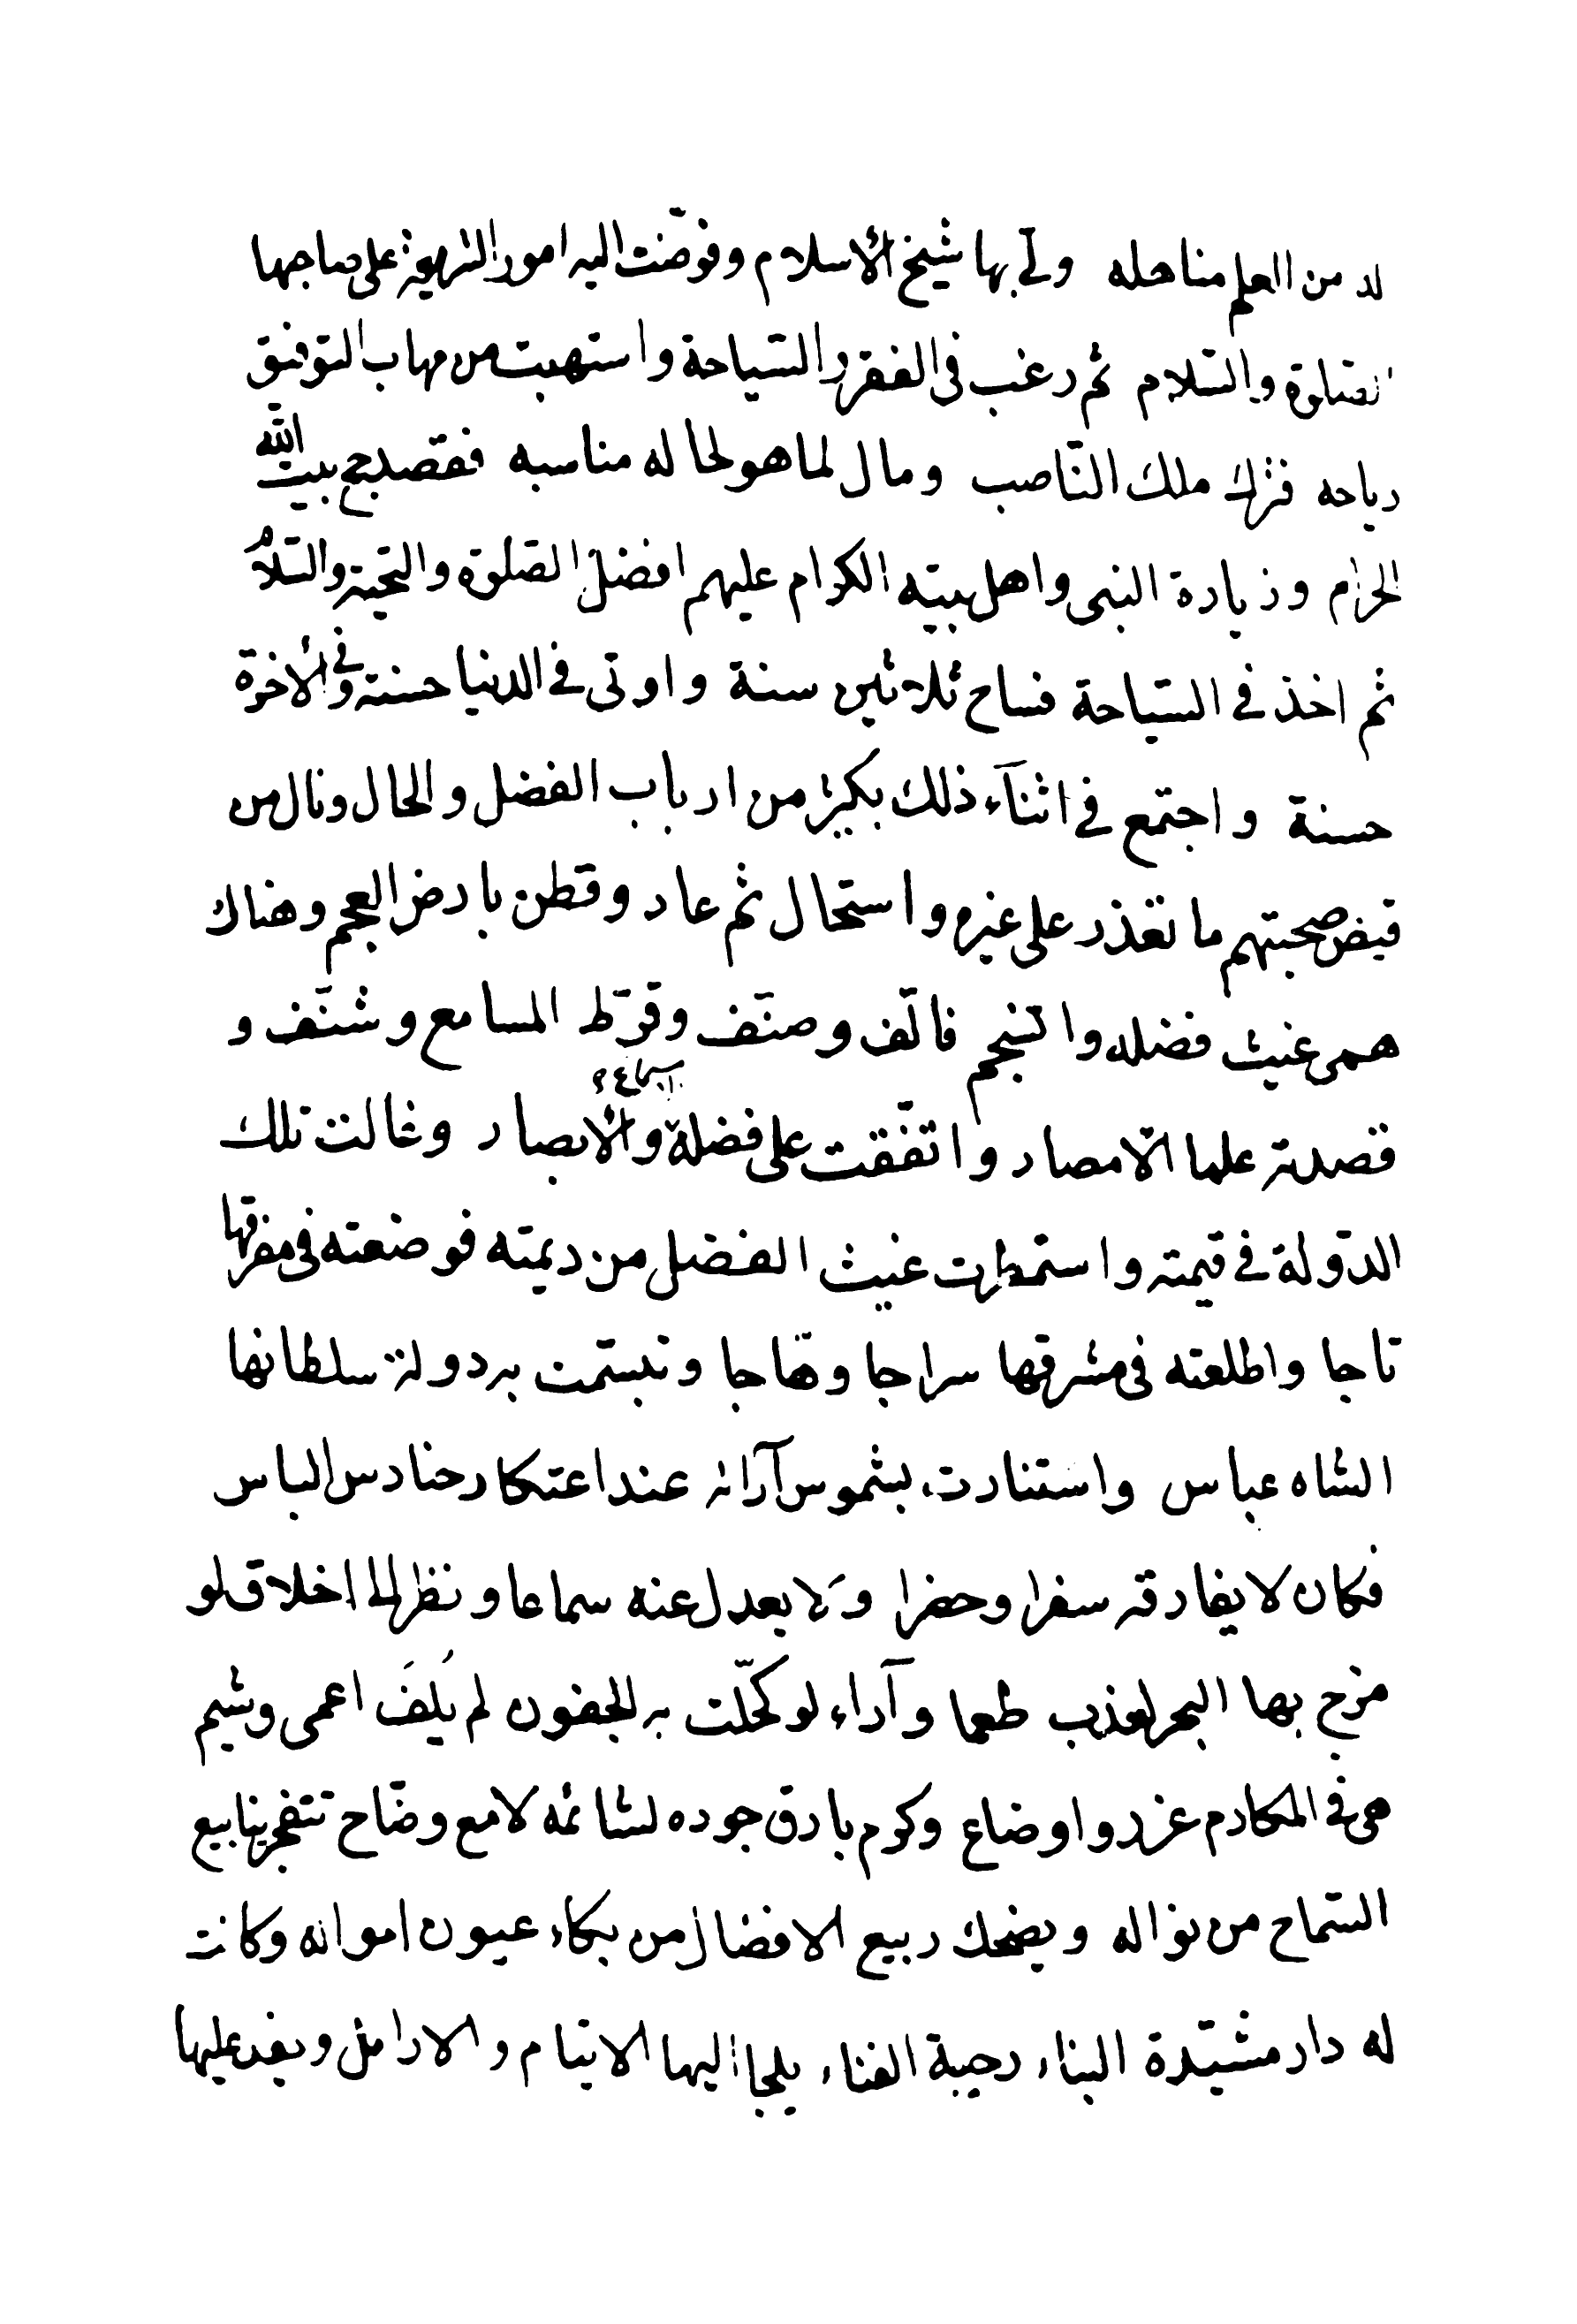 له من العلم مناهله ولّى بها شيخ الأسلام وفوّضت اليه امور الشريعة على صاحبها
الصّلوة والسّلام ثم رغب فى الفقر والسّياحة واستهبت من مهاب التوفيق
رياحه فترك ملك النّاصب ومال لما هو لحاله مناسبه فقصد حج بيت الله
الحرام وزيارة النبى واهل بيته الكرام عليهم افضل الصّلوة والتحية والسّلام
ثم اخذ فى السّياحة فساح ثلاثين سنة واوتى فى الدنيا حسنة وفى الأخرة
حسنة واجتمع فى اثنآء ذلك بكثير من ارباب الفضل والحال ونال من
فيض صحبتهم ما تعذر على غيره واستحال ثم عاد وقطن بارض العجم وهناك
همى غيث فضله وانسجم فالّف وصنّف وقرّط المسامع وشنّف و
قصدته علما الأمصار واتّفقت على فضله والأبصار وغالت تلك
الدّولة فى قيمته واستمطرت غيث الفضل من ديمته فوضعته فى مفرقها
تاجا واطلعته فى مشرقها سراجا وهّاجا وتبسّمت به دولة سلطانها
الشاه عباس واستنارت بشموس آرائه عند اعتكار حنادس الباس
فكان لا يفارقه سفرا وحضرا ولا يعدل عنه سماعا ونظرا الى اخلاق لو
مزج بها البحر لعذب طعما وآراء لو كحّلت به الجفون لم يُلفَ اعمى وشيم
هى فى المكارم غرر واوضاع وكرم بارق جوده لشائمه لامع وضّاح تتفجر ينابيع
السّماح من نواله ويضحك ربيع الافضال من بكاء عيون امواله وكانت
له دار مشيّدة البناء رحيبة الفناء يلجا اليها الايتام والارامل ويفد عليها